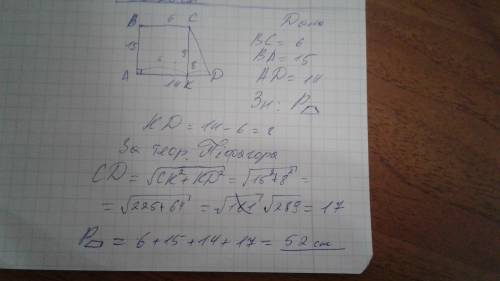 B 6 C
15 6 9 8
A 14 K D
Дано
BC = 6
BA = 15
AD = 14
Зн: P
KD = 14 - 6 = 8
За теор. Піфагора
CD = √CK² + KD² = √15² + 8² =
= √225 + 64 = √289 = 17
P = 6 + 15 + 14 + 17 = 52 см